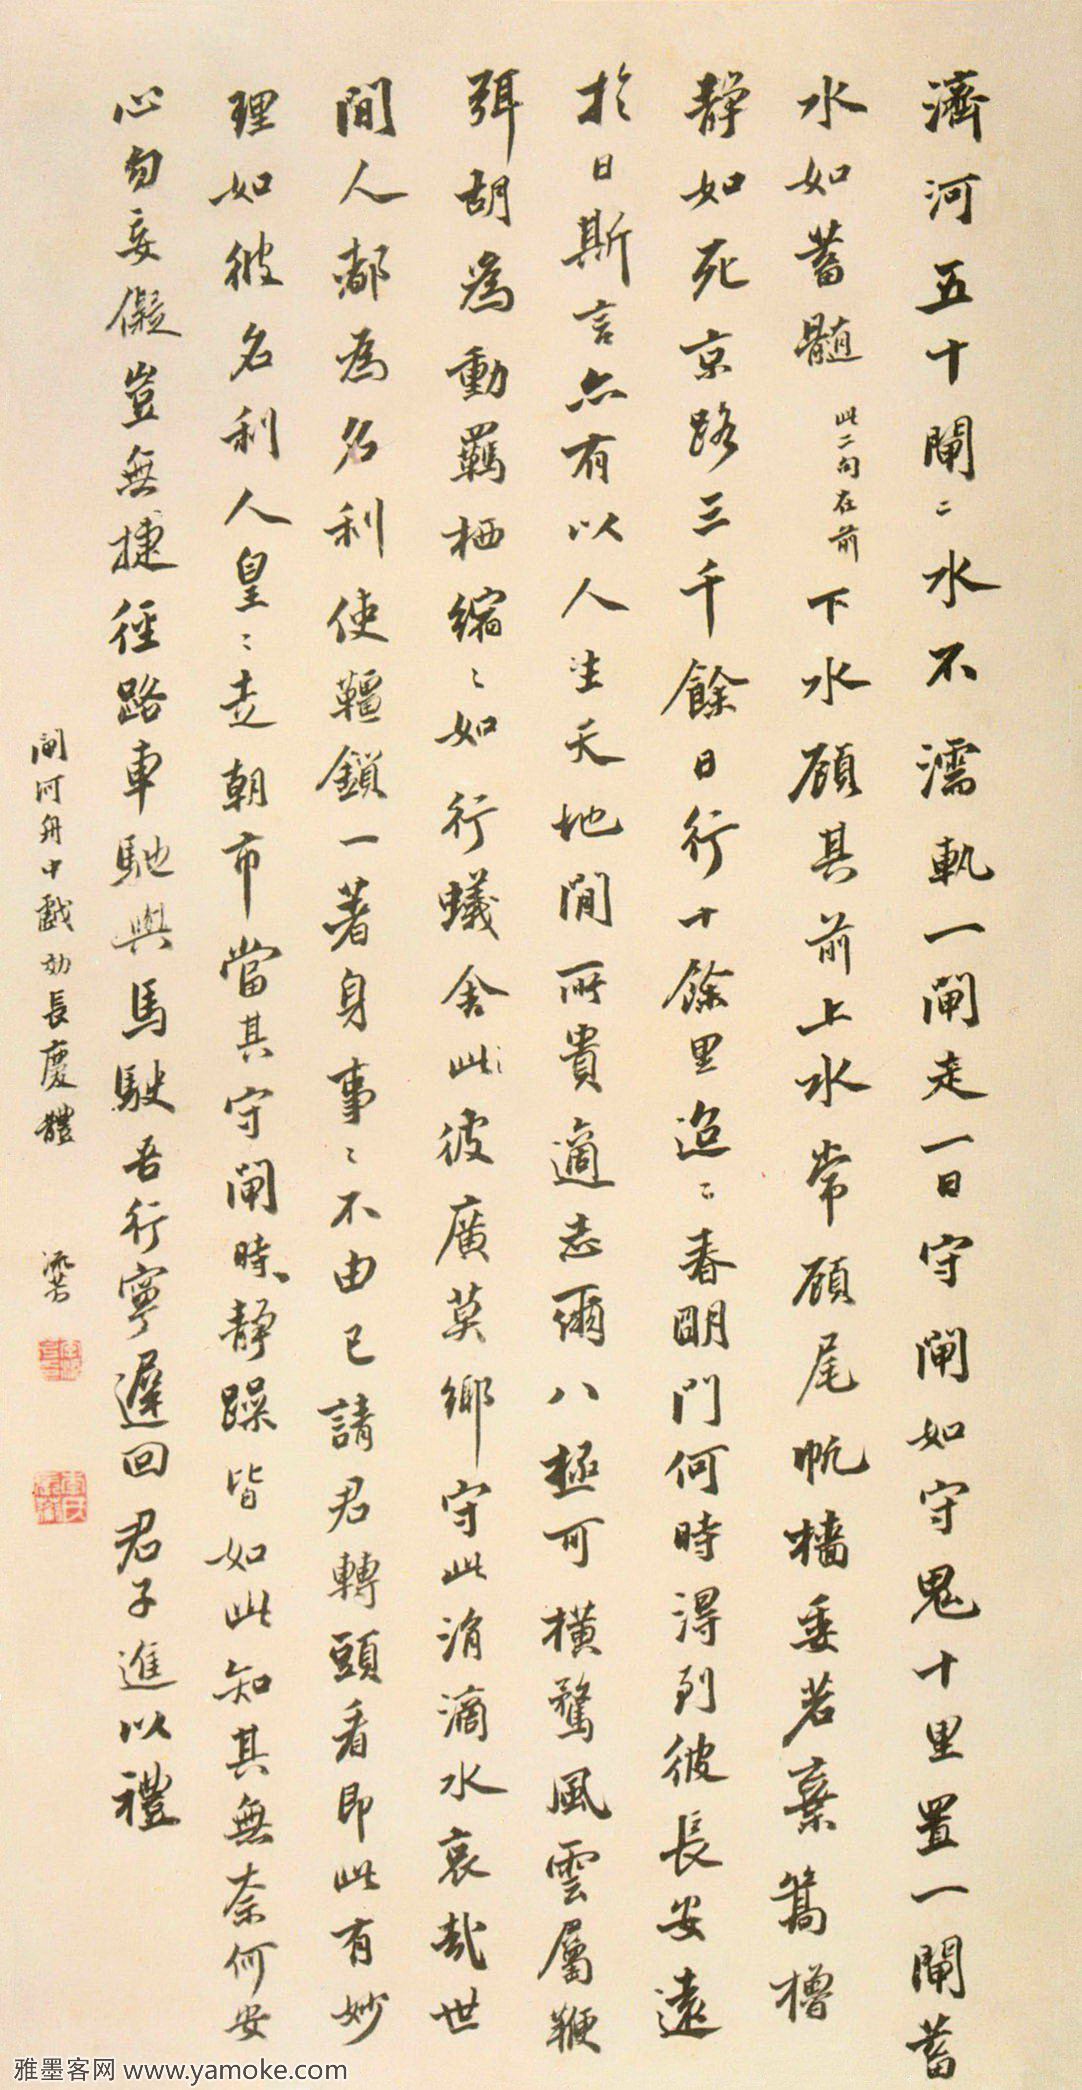 濟河五十閘〻水不濡軌一閘走一日守閘如守鬼十里置一閘蓄
水如蓄髓此二句在前下水顧其前上水常顧尾帆檣委若棄篙櫓
靜如死京路三千餘日行十餘里迢〻春明門何時得到彼長安遠
於日斯言亦有以人生天地間所貴適志爾八極可橫騖風雲屬鞭
弭胡為動羈栖縮〻如行蟻舍此彼廣莫鄉守此涓滴水哀哉世
間人都為名利使韁鎖一著身事〻不由己請君轉頭看即此有妙
理如彼名利人皇〻走朝市當其守閘時靜躁皆如此知其無奈何安
心勿妄儗豈無捷徑路車馳與馬駛吾行寧遲回君子進以禮
閘河舟中戲効長慶體
雅墨客网 www.yamoke.com